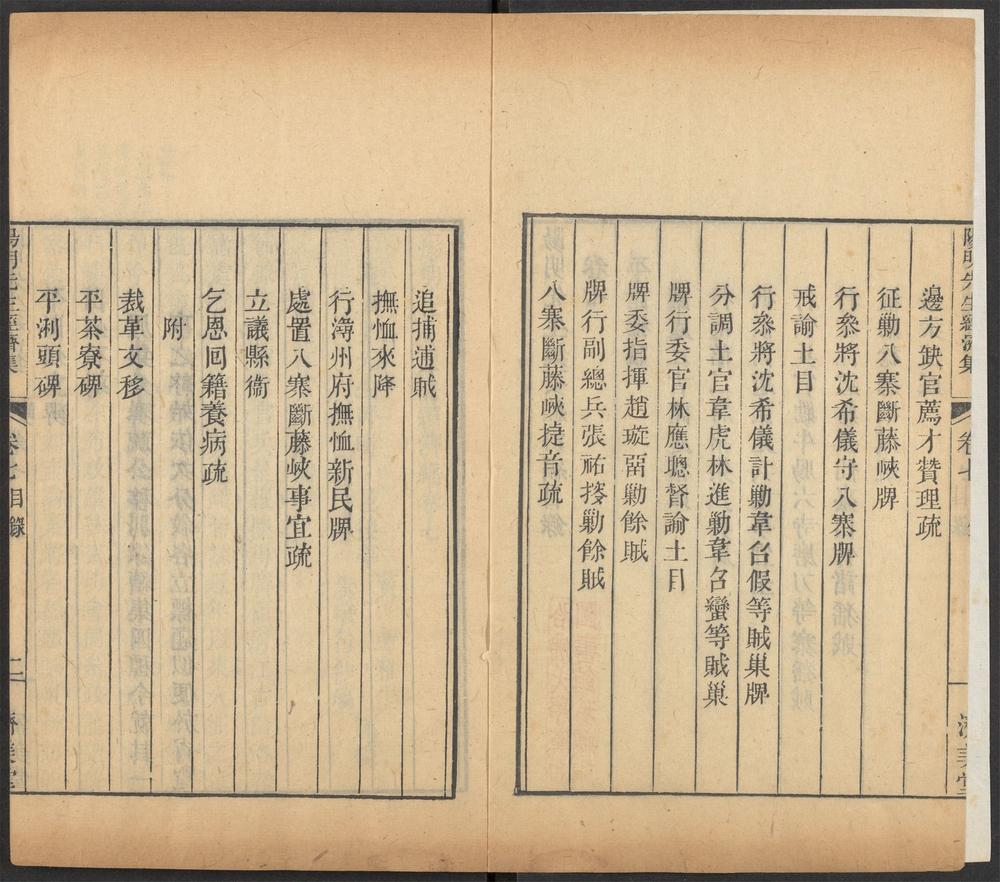 陽明先生經濟集
卷七
濟美堂
邊方缺官薦才贊理疏
征勦八寨斷藤峽牌
行叅將沈希儀守八寨牌
戒諭土目
行叅將沈希儀計勦韋召假等賊巢牌
分調土官韋虎林進勦韋召蠻等賊巢
牌行委官林應聰督諭土目
牌委指揮趙璇畱勦餘賊
牌行副總兵張祐搜勦餘賊
八寨斷藤峽捷音疏
追捕逋賊
撫恤來降
行潯州府撫恤新民牌
處置八寨斷藤峽事宜疏
立議縣衞
乞恩回籍養病疏
附
裁革文移
平茶寮碑
平浰頭碑
陽明先生經濟集
卷七目錄
二
濟美堂